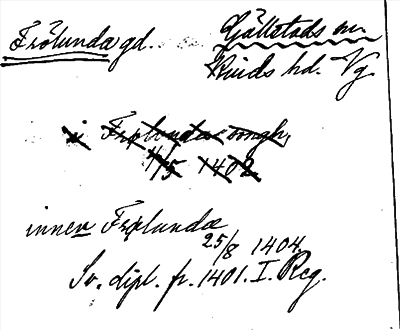 Frölunda gd. Gällstads sn.
Kinds hd. Vg.
i Frølunda sogh,
4/15 1402
innen Frølunda
25/8 1404.
Sv. dipl. fr. 1401. I. Reg.